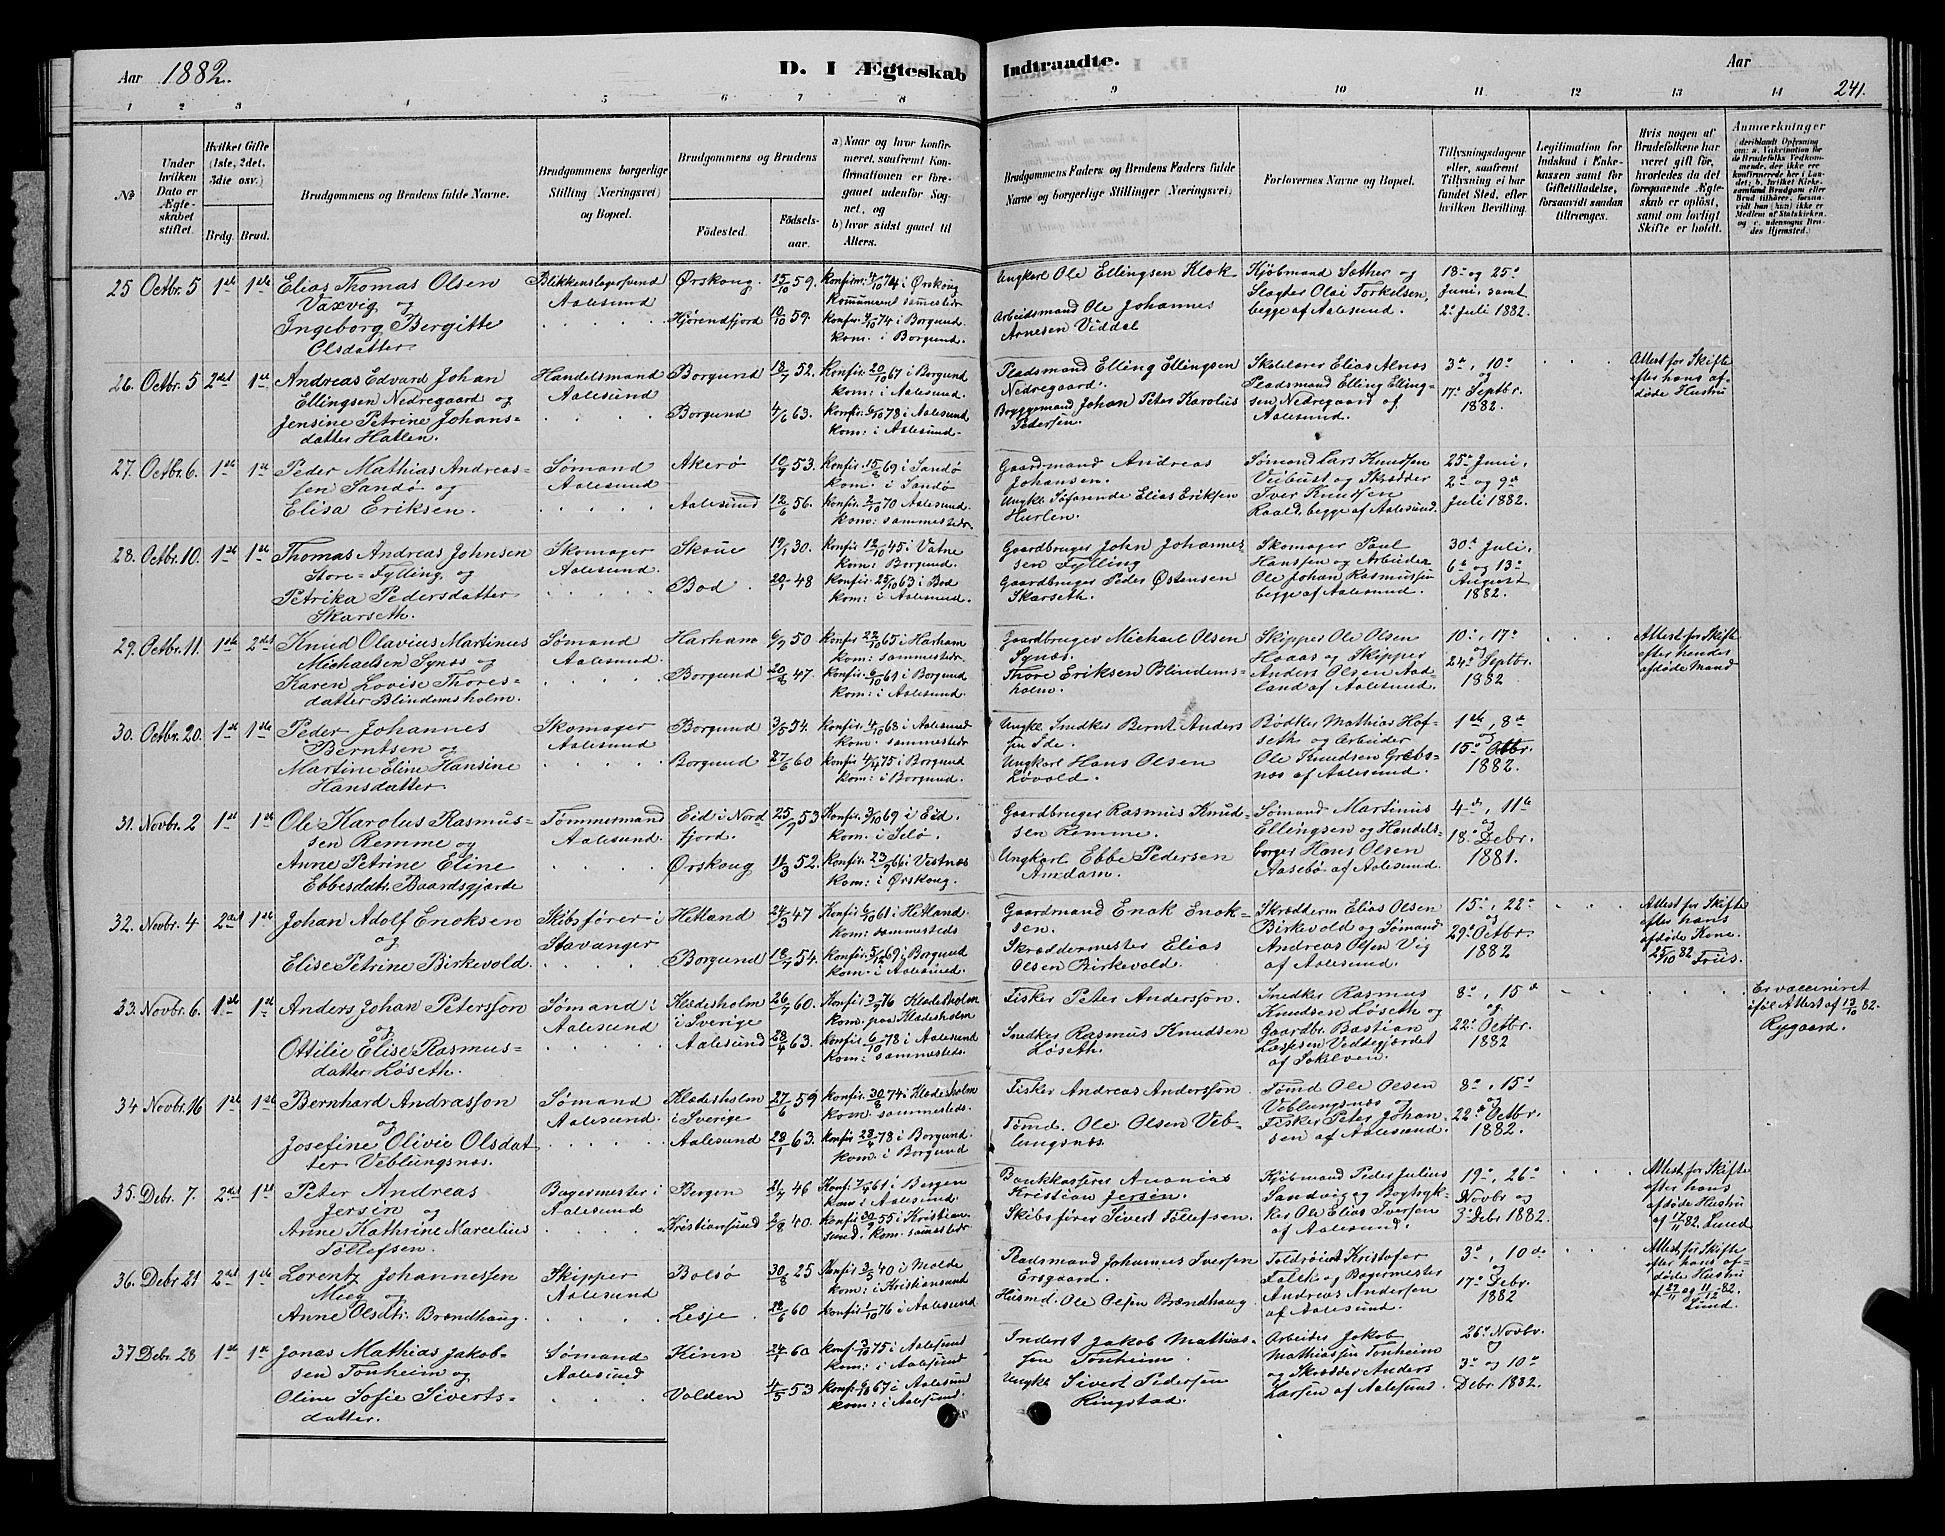 Aar 1882.
D. I Ægteskab Indtraadte.
Aar
241.
1 2 3 4 5 6 7 8 9 10 11 12 13 14
No
Under hvilken Dato er Ægteskabet stiftet.
Hvilket Gifte (1ste, 2det, 3die osv.)
Brdg. Brud.
Brudgommens og Brudens fulde Navne.
Brudgommens borgerlige Stilling (Næringsvei) og Bopæl.
Brudgommens og Brudens
Födested. Födsels-aar.
a) Naar og hvor konfirmeret, saafremt Konfirmationen er foregaaet udenfor Sognet, og
b) hvor sidst gaaet til Alters.
Brudgommens Faders og Brudens Faders fulde Navne og borgerlige Stillinger (Næringsvei)
Forlovernes Navne og Bopæl.
Tillysningsdagene eller, saafremt Tillysning ei har fundet Sted, efter hvilken Bevilling.
Legitimation for Indskud i Enkekassen samt for Giftetilladelse, forsaavidt saadan tiltrænges.
Hvis nogen af Brudefolkene har været gift för, hvorledes da det foregaaende Ægteskab er oplöst, samt om lovligt Skifte er holdt.
Anmærkninger
25 Octbr. 5 1ste 1ste Elias Thomas Olsen Vaxvig og Ingeborg Bergitte Olsdatter.
Blikkenslagersvend Aalesund
Ørskoug. 15/10 59. Konfirm: 4/10 74 i Ørskoug
Hjørendfjord 19/10 59. Konfir: 4/10 74 i Borgund. kom. i Borgund.
Ungkarl Ole Ellingsen Klok
Arbeidsmand Ole Johannes Arnesen Viddal
Kjøbmand Sæther og Slagter Olai Torkelsen, begge af Aalesund.
18de og 25de Juni, samt 2de Juli 1882.
26. Octbr. 5 2det 1ste Andreas Edvard Johan Ellingsen Nedregaard og Jensine Petrine Johansdatter Hatlen.
Handelsmand Aalesund
Borgund 18/7 52. Konfir: 20/10 67 i Borgund kom: i Aalesund.
Borgund 4/6 63. Konfir: 6/10 78 i Aalesund kom: i Aalesund.
Pladsmand Elling Ellingsen Nedregaard.
Bryggemand Johan Peter Karolus Pedersen.
Skolelærer Elias Alnes Pladsmand Elling Ellingsen Nedregaard af Aalesund.
3de, 10de 17de Septbr. 1882.
Attest for Skifte efter hans afdøde Hustru
27. Octbr. 6. 1ste 1ste Peder Mathias Andreassen Sandø og Elisa Eriksen.
Sømand Aalesund
Akerø 10/7 53. Konfir: 15/8 69 i Sandø kom. i Sandø
Aalesund 12/6 56. Konfir: 2/10 70 Aalesund. kom: sammesteds.
Gaardmand Andreas Johansen.
Ungkl. Søfarende Elias Eriksen Hurlen.
Sømand Lars Knudsen Veibust og Skrædder Iver Knudsen Raald, begge af Aalesund.
25de Juni, 2de og 9de Juli 1882.
28. Octbr. 10. 1ste 1ste Thomas Andreas Johnsen Store-Fylling og Petrika Pedersdatter Skarseth.
Skomager Aalesund.
Skoue 19/1 30. Konfir 12/10 45 i Vatne kom: Borgund.
Bod. 20/1 48 Konfir: 25/10 63 i Bod kom: i Aalesund.
Gaardbruger John Johannessen Fylling
Gaardbruger Peder Østensen Skarseth.
Skomager Paul Hanssen og Arbeider Ole Johan Rasmussen begge af Aalesund.
30de Juli, 6te og 13de August 1882.
29. Octbr. 11. 1ste 2det Knud Olavius Martinus Michaelsen Synæs og Karen Lovise Thoresdatter Blindemsholm.
Sømand Aalesund.
Harham 6/9 50 Konfir 22/10 65 i Harham kom: sammesteds.
Borgund 20/8 47. Konfir: 6/10 61 i Borgund kom: i Aalesund.
Gaardbruger Michael Olsen Synæs.
Thore Eriksen Blindemsholm.
Skipper Ole Olsen Haaas og Skipper Anders Olsen Aadland af Aalesund.
10de, 17de og 24de Septbr. 1882
Attest for Skifte efter hendes afdøde Mand
30. Octbr. 20. 1ste 1ste Peder Johannes Berntsen og Martine Eline Hansine Hansdatter.
Skomager Aalesund
Borgund 3/5 54. Konfir: 4/10 68 i Aalesund kom. sammesteds.
Borgund 27/6 60 Konfir 4/4 75 i Borgund kom: i Borgund.
Ungkl. Snedker Bernt Anderssen Ide.
Ungkarl Hans Olsen Løvold.
Bødker Mathias Hofseth og Arbeider Ole Knudsen Grebsnæs af Aalesund.
1ste, 8de og 15de Octbr. 1882.
31. Novbr. 2 1ste 1ste Ole Karolus Rasmussen Remme og Anne Petrine Eline Ebbesdatr. Baardsgjærde
Tømmermand Aalesund.
Eid i Nordfjord. 25/9 53 Konfir: 3/10 69 i Eid. kom. i Selø.
Ørskoug 11/3 52. Konfir: 23/9 66 i Vestnæs kom: i Ørskoug.
Gaardbruger Rasmus Knudsen Romme.
Ungkarl Ebbe Pedersen Amdam.
Sømand Martinus Ellingsen og Handelsborger Hans Olsen Aasebø af Aalesund.
4de, 11te og 18de Debr. 1881.
32. Novbr. 4 2det 1ste Johan Adolf Enoksen og Elise Petrine Birkevold.
Skibsfører i Stavanger
Hetland 24/3 47 Konfir 6/10 61 i Hetland. kom: sammesteds
Borgund 16/7 54. Konfir: 5/12 69 i Borgund kom: i Aalesund.
Gaardmand Enok Enoksen.
Skræddermester Elias Olsen Birkevold.
Skrædderm Elias Olsen Birkevold og Sømand Andreas Olsen Vig af Aalesund.
15de, 22de og 29de Octbr. 1882
Attest for Skifte efter hans afdøde Kone. 25/10 82 Friis.
33. Novbr. 6. 1ste 1ste Anders Johan Petersson og Ottilie Elise Rasmusdatter Løseth.
Sømand i Aalesund.
Kladesholm i Sverige 26/6 60. Konfir 3/9 76 Kladesholm kom. paa Kladesholm
Aalesund 28/4 63. Konfir: 6/10 78 i Aalesund kom: sammesteds.
Fisker Peter Andersson.
Snedker Rasmus Knudsen Løseth.
Snedker Rasmus Knudsen Løseth og Gaardbr. Bastian Laspesen Veddegjærdet af Sokelven.
8de, 15de og 22de Octbr. 1882
Er vaccineret iføl Attest af 13/10 82. Rygaard.
34 Novbr. 16 1ste 1ste Bernhard Andrasson og Josefine Olivie Olsdatter Veblungsnæs.
Sømand Aalesund.
Kladesholm i Sverige 27/6 59 Konfir: 30/8 74 i Kladesholm kom. sammesteds.
Aalesund 28/1 63. Konfir 28/4 78 i Borgund. kom. i Borgund
Fisker Andreas Andersson.
Tømd. Ole Olsen Veblungsnæs.
Tømd Ole Olsen Veblungsnæs og Fisker Peter Johansen af Aalesund.
8de, 15de og 22de Octbr. 1882.
35. Debr. 7. 2det 1ste Peter Andreas Jersin og Anne Kathrine Marcelius Tollefsen.
Bagermester i Aalesund
Bergen 21/7 46 Konf: 7/4 61 i Bergen kom: i Aalesund
Kristiansund 2/8 40. Konfir 30/9 55 i Kristiansund. kom. sammesteds
Bankkasserer Ananias Kristian Jersin.
Skibsfører Sivert Tollefsen.
Kjøbmand Peder Julius Sandvig og Bogtrykker Ole Elias Iversen af Aalesund.
19de, 26de Novbr og 3de Debr 1882.
Attest for Skifte efter hans afdøde Hustru af 17/11 82. Lund
36. Debr 21 2det 1ste Lorentz Johannessen Meeg og Anne Olsdtr. Brændhaug.
Skipper Aalesund
Bolsø 30/8 25 Konfir 3/5 40 i Molde kom: i Kristiansund
Lesje 22/6 60 Konfir: 1/10 76 i Aalesund kom: i Aalesund.
Pladsmand Johannes Iversen Ersgaard.
Husmd. Ole Olsen Brændhaug.
Toldroiert Kristofer Falck og Bagermester Andreas Andersen af Aalesund.
3de, 10de og 17de Debr. 1882
Attest for Skifte efter hans afdøde Hustru af 27/11 og 11/12 82. Lund.
37 Debr. 28 1ste 1ste Jonas Mathias Jakobsen Tonheim og Oline Sofie Sivertsdatter.
Sømand Aalesund
Kinn 24/1 60 Konf: 3/10 75 i Aalesund kom: i Aalesund
Volden 4/5 53 Konf: 6/10 67 i Aalesund kom: i Aalesund.
Inderst Jakob Mathiassen Tonheim.
Ungkl Sivert Pedersen Ringstad.
Arbeider Jakob Mathiassen Tonheim og Skrædder Anders Larsen af Aalesund.
26de Novbr. 3de og 10de Debr 1882.